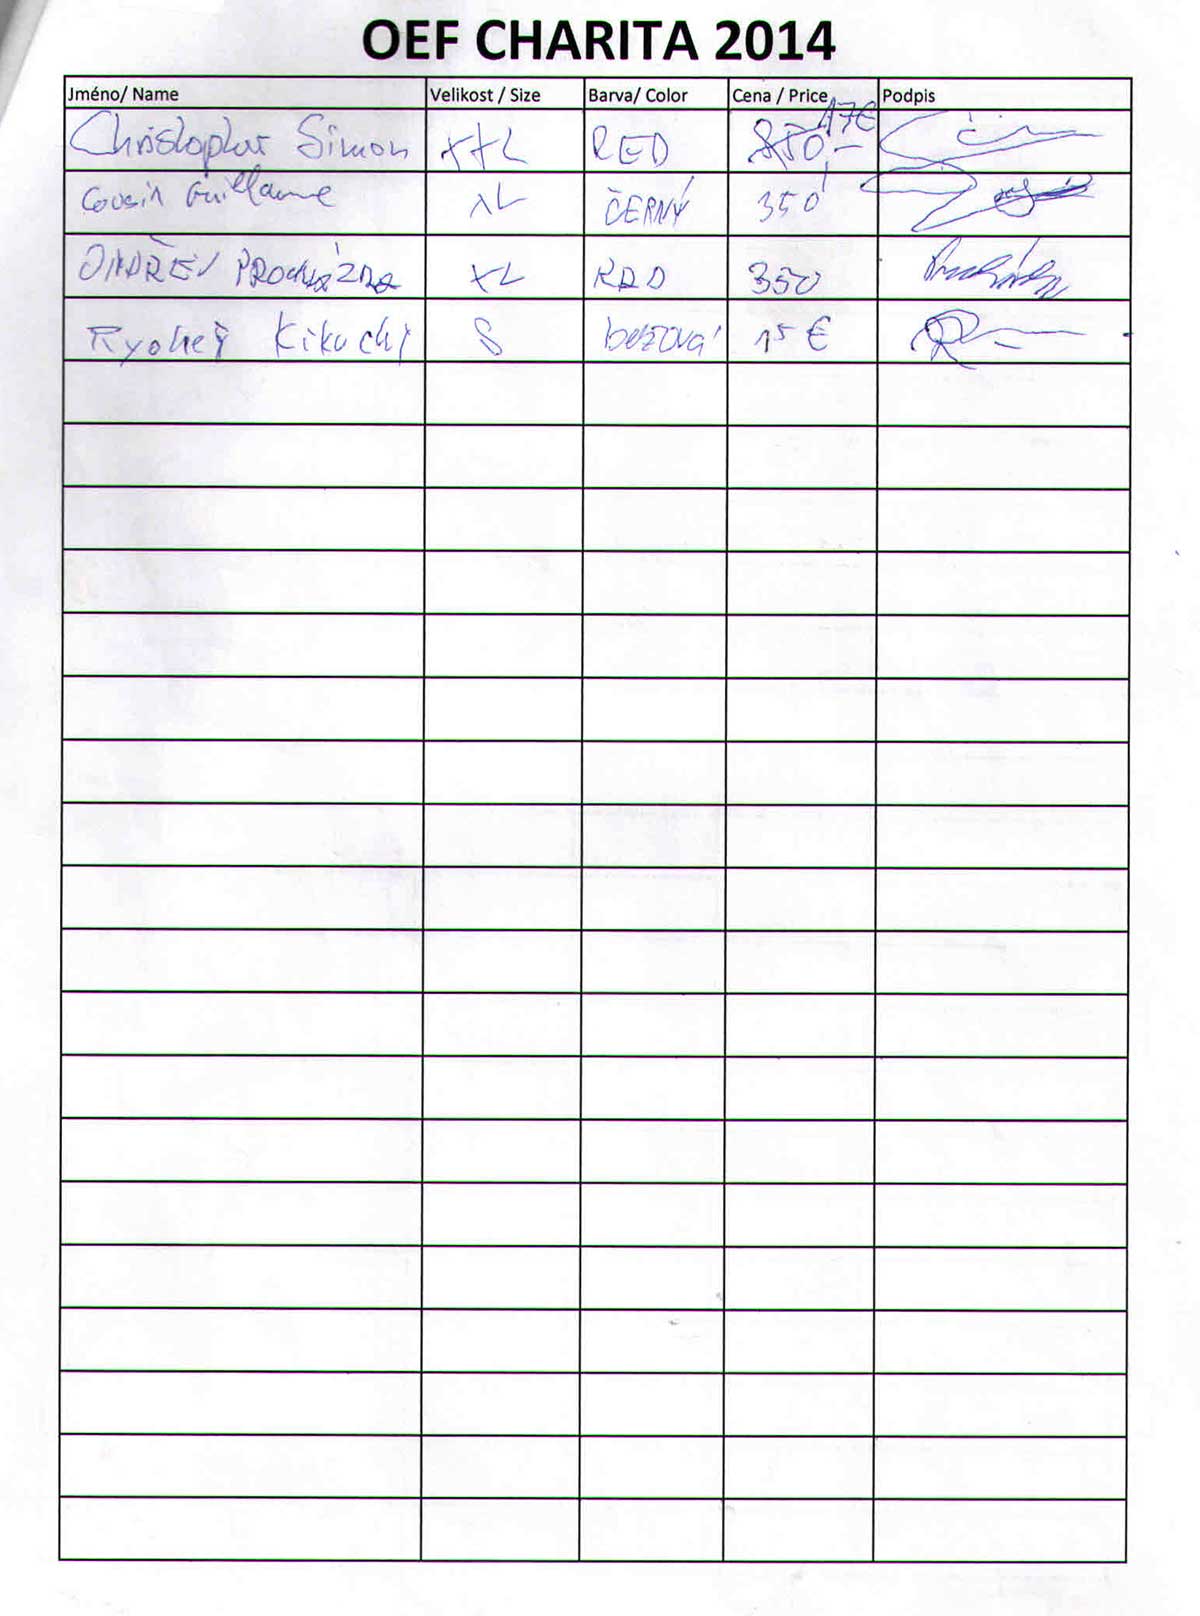 OEF CHARITA 2014
Jméno/ Name Velikost / Size Barva/ Color Cena / Price Podpis
Christopher Simon XXL RED 850,- 17€
Cousin Guillaume XL ČERNÝ 350
ONDŘEJ PROCHÁZKA XL RED 350
Ryohei Kikuchi S bezová 15 €